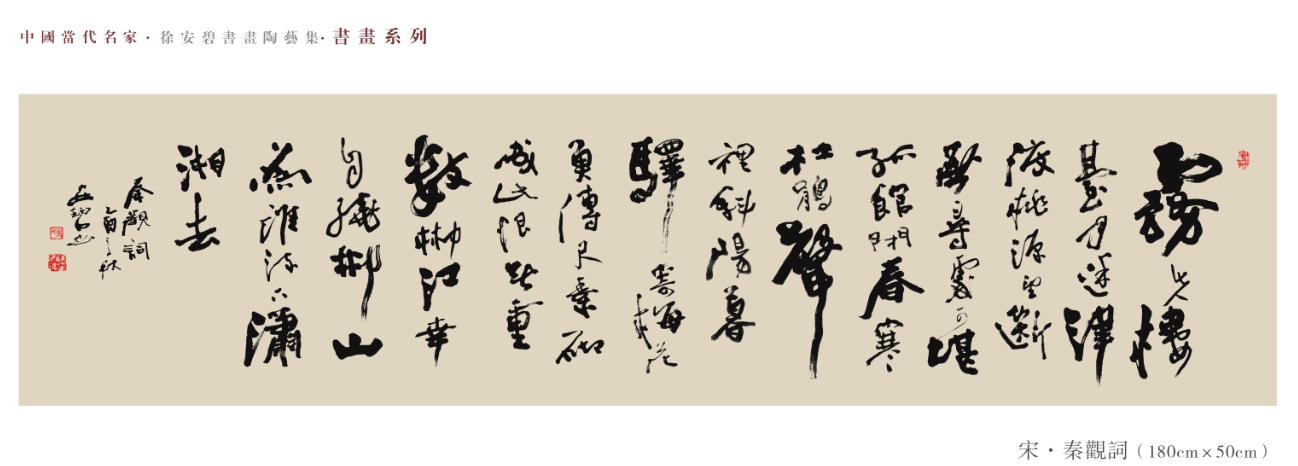 中國當代名家·徐安碧書畫陶藝集·書畫系列
霧失樓
臺月迷津
渡桃源望斷
無尋處可堪
孤館閉春寒
杜鵑聲
裡斜陽暮
驛寄梅花
魚傳尺素砌
成此恨無重
數郴江幸
自繞郴山
為誰流下瀟
湘去
秦觀詞
乙酉之秋
安碧
宋·秦觀詞（180cm×50cm）